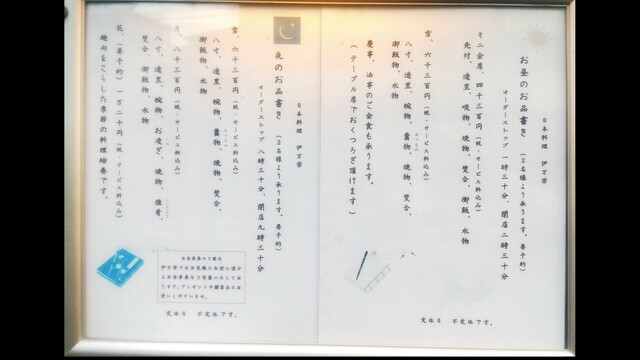 日本料理 伊万栄
お昼のお品書き (2名様より承ります。要予約)
オーダーストップ 一時三十分、閉店二時三十分
ミニ会席、四千三百円(税・サービス料込み)
先付、造里、吸物、焼物、焚合、御飯、水物
雪、六千三百円(税・サービス料込み)
八寸、造里、椀物、蓋物、焼物、焚合、
御飯物、水物
慶事、法事のご会食も承ります。
(テーブル席でおくつろぎ頂けます)
定休日 不定休です。
日本料理 伊万栄
夜のお品書き (2名様より承ります。要予約)
オーダーストップ 八時三十分、閉店九時三十分
雪、六千三百円(税・サービス料込み)
八寸、造里、椀物、蓋物、焼物、焚合、
御飯物、水物
月、八千三百円(税・サービス料込み)
八寸、造里、椀物、お凌ぎ、焼物、強肴、
焚合、御飯物、水物
花、(要予約) 一万二千円(税・サービス料込み)
趣向をこらした季節の料理絵巻です。
お食事券のご案内
伊万栄ではお気軽にお使い頂け
るお食事券をご用意いたしてお
ります。プレゼントや贈答品にお
使いくださいませ。
定休日 不定休です。